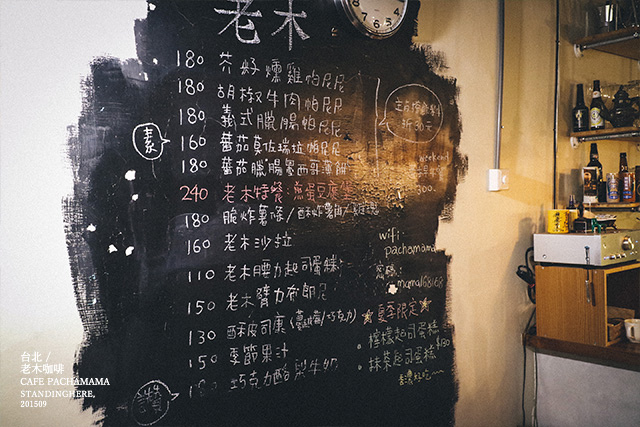 老木
180 芥籽燻雞帕尼尼
180 胡椒牛肉帕尼尼
180 義式臘腸帕尼尼
素 160 蕃茄莫佐瑞拉帕尼尼
180 蕃茄臘腸墨西哥薄餅
240 老木特餐:
180 脆炸薯條/
160 老木沙拉
110 老木腰力起司蛋糕
150 老木臂力布朗尼
130 酥皮司康(蔓越莓/巧克力)
150 季節果汁
180 巧克力酪梨牛奶
讚
折30元
weekend
300.
wifi:
pachamama
密碼:
mama168168
夏季限定
檸檬起司蛋糕
抹茶起司蛋糕
台北 /
老木咖啡
CAFE PACHAMAMA
STANDINGHERE,
201509